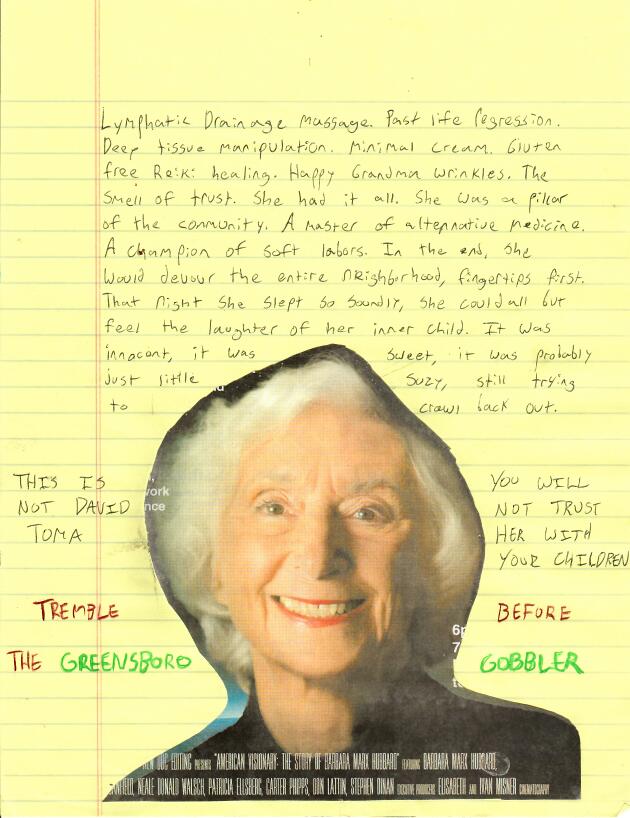 Lymphatic Drainage Massage. Past life regression.
Deep tissue manipulation. Minimal cream. Gluten
free Reiki healing. Happy Grandma wrinkles. The
smell of trust. She had it all. She was a pillar
of the community. A master of alternative medicine.
A champion of soft labors. In the end, she
would devour the entire neighborhood, fingertips first.
That night she slept so soundly, she could all but
feel the laughter of her inner child. It was
innocent, it was sweet, it was probably
just little Suzy, still trying
to crawl back out.
THIS IS
NOT DAVID
TOMA
work
nce
YOU WILL
NOT TRUST
HER WITH
YOUR CHILDREN
TREMBLE BEFORE
THE GREENSBORO GOBBLER
6p
7
NEW DOC EDITING PRESENTS "AMERICAN VISIONARY: THE STORY OF BARBARA MARX HUBBARD" FEATURING BARBARA MARX HUBBARD,
NEALE DONALD WALSCH, PATRICIA ELLSBERG, CARTER PHIPPS, ORN LATTIN, STEPHEN DINAN EXECUTIVE PRODUCERS ELISABETH AND IVAN MISNER CINEMATOGRAPHY